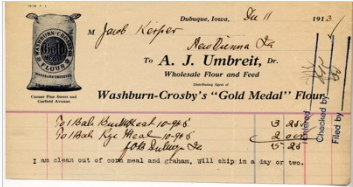 WASHBURN-CROSBY'S
GOLD MEDAL
FLOUR
Corner Pine Street and
Garfield Avenue
Dubuque, Iowa, Dec 11 1913
M Jacob Kerper
New Vienna Ia
To A. J. Umbreit, Dr.
Wholesale Flour and Feed
Distributing Agent of
Washburn-Crosby's "Gold Medal" Flour
Entered
Checked by
Filed by
To 1 Bab Buckwheat 10-9#5 3 25
To 1 Bab Rye Meal 10-9#5 2 00
FOB Dubuque Ia 5.25
I am clean out of corn meal and graham, will ship in a day or two.